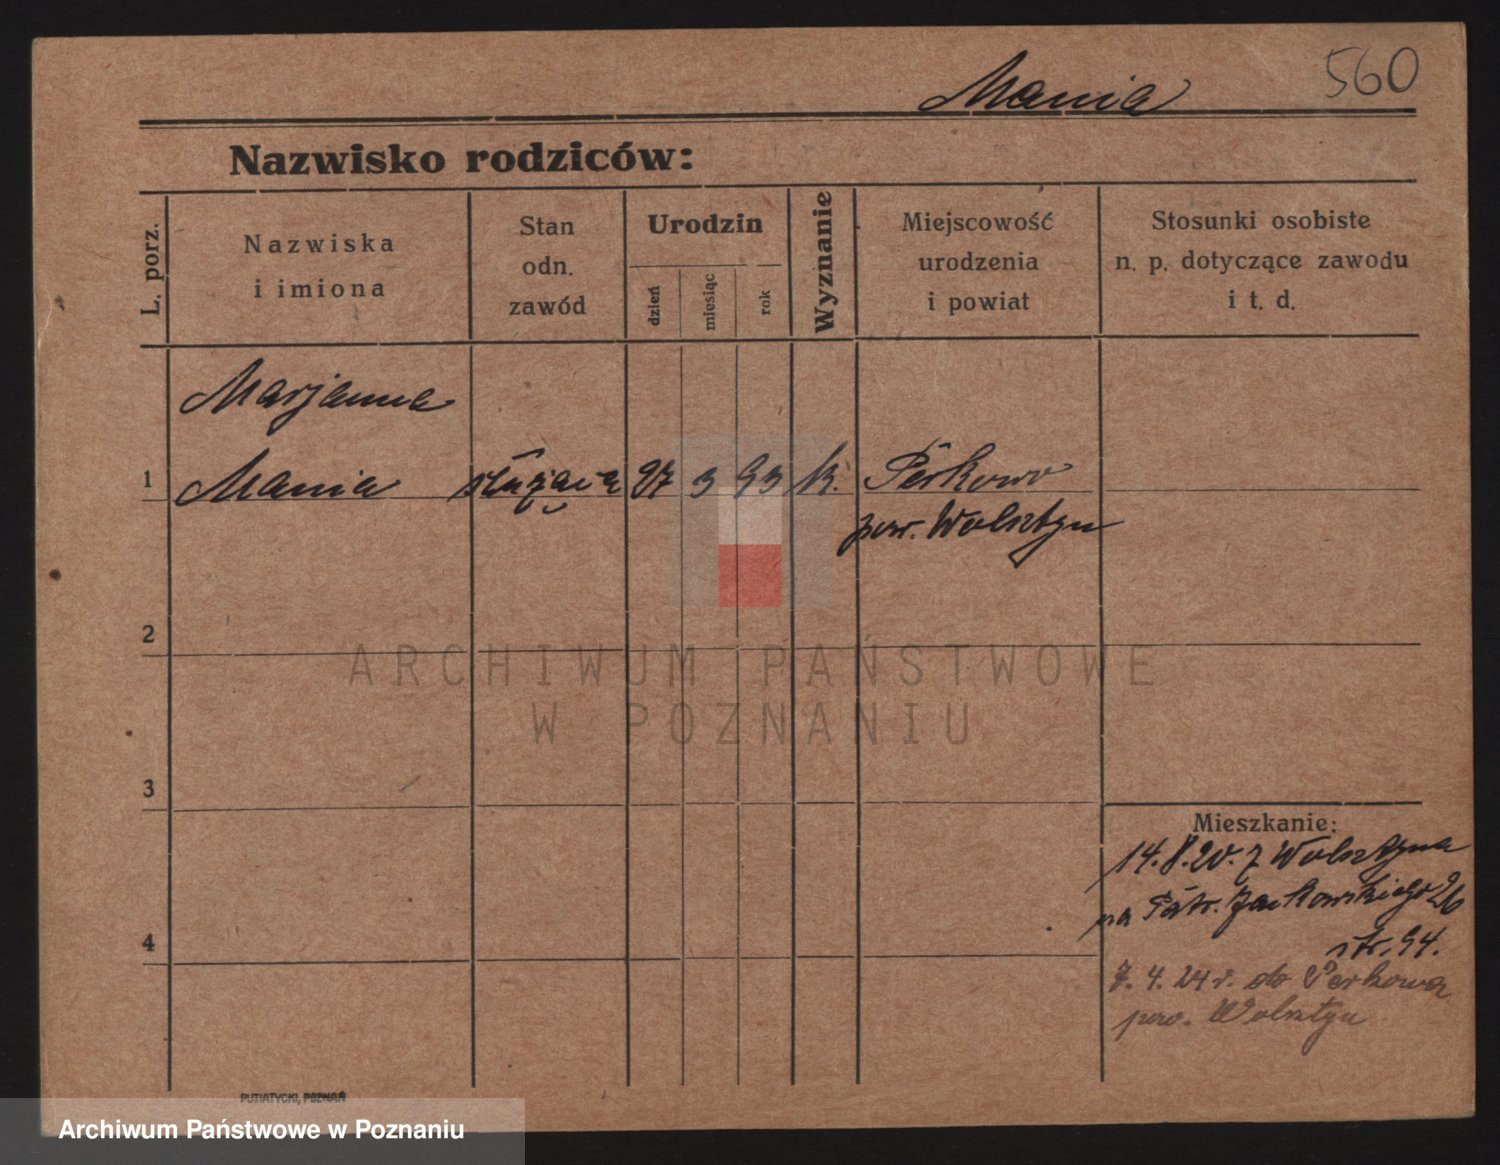 560
Mania
Nazwisko rodziców:
L. porz.
Nazwiska
i imiona
Stan
odn.
zawód
Urodzin
dzień
miesiąc
rok
Wyznanie
Miejscowość
urodzenia
i powiat
Stosunki osobiste
n. p. dotyczące zawodu
i t. d.
Marjanna
1 Mania służąca 27 3 93 k. Perkowo
pow. Wolsztyn
2
ARCHIWUM PAŃSTWOWE
W POZNANIU
3
Mieszkanie:
14.8.20. z Wolsztyna
na Patr. Jackowskiego 26
str. 94.
4
7. 4. 24 r. do Perkowa
pow. Wolsztyn
PUTIATYCKI, POZNAŃ
Archiwum Państwowe w Poznaniu